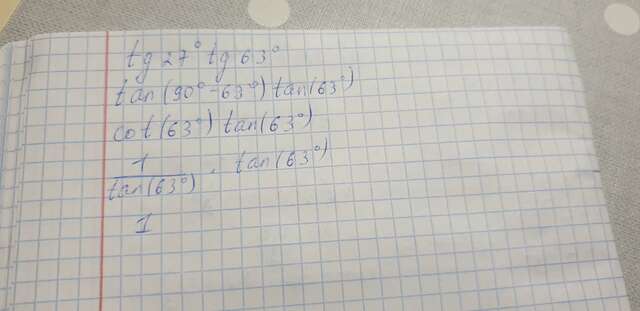 tg 27° tg 63°
tan(90°-63°) tan(63°)
cot(63°) tan(63°)
1/tan(63°) · tan(63°)
1